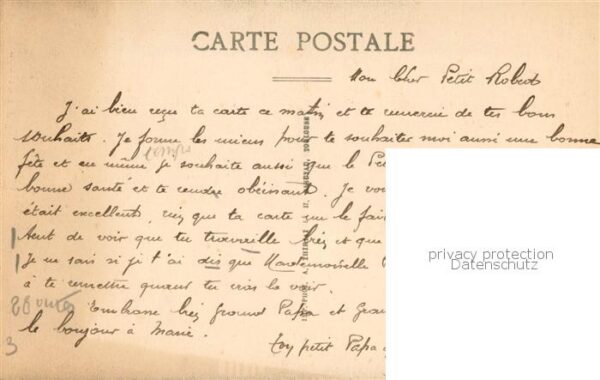 CARTE POSTALE
Mon Cher Petit Robert
J'ai bien reçu ta carte ce matin et te remercie de tes bons
souhaits. Je forme les miens pour te souhaiter moi aussi une bonne
temps
fête et en même je souhaite aussi que le Pet
bonne santé et te rendre obéissant. Je vou
était excellents, rien que ta carte me le fais
tout de voir que tu travaille bien et que
Je ne sais si je t'ai dis que Mademoiselle
à te remettre quand tu iras la voir.
Embrasse bien Grand Papa et Gran
le bonjour à Marie.
Ton petit Papa
3
privacy protection
Datenschutz